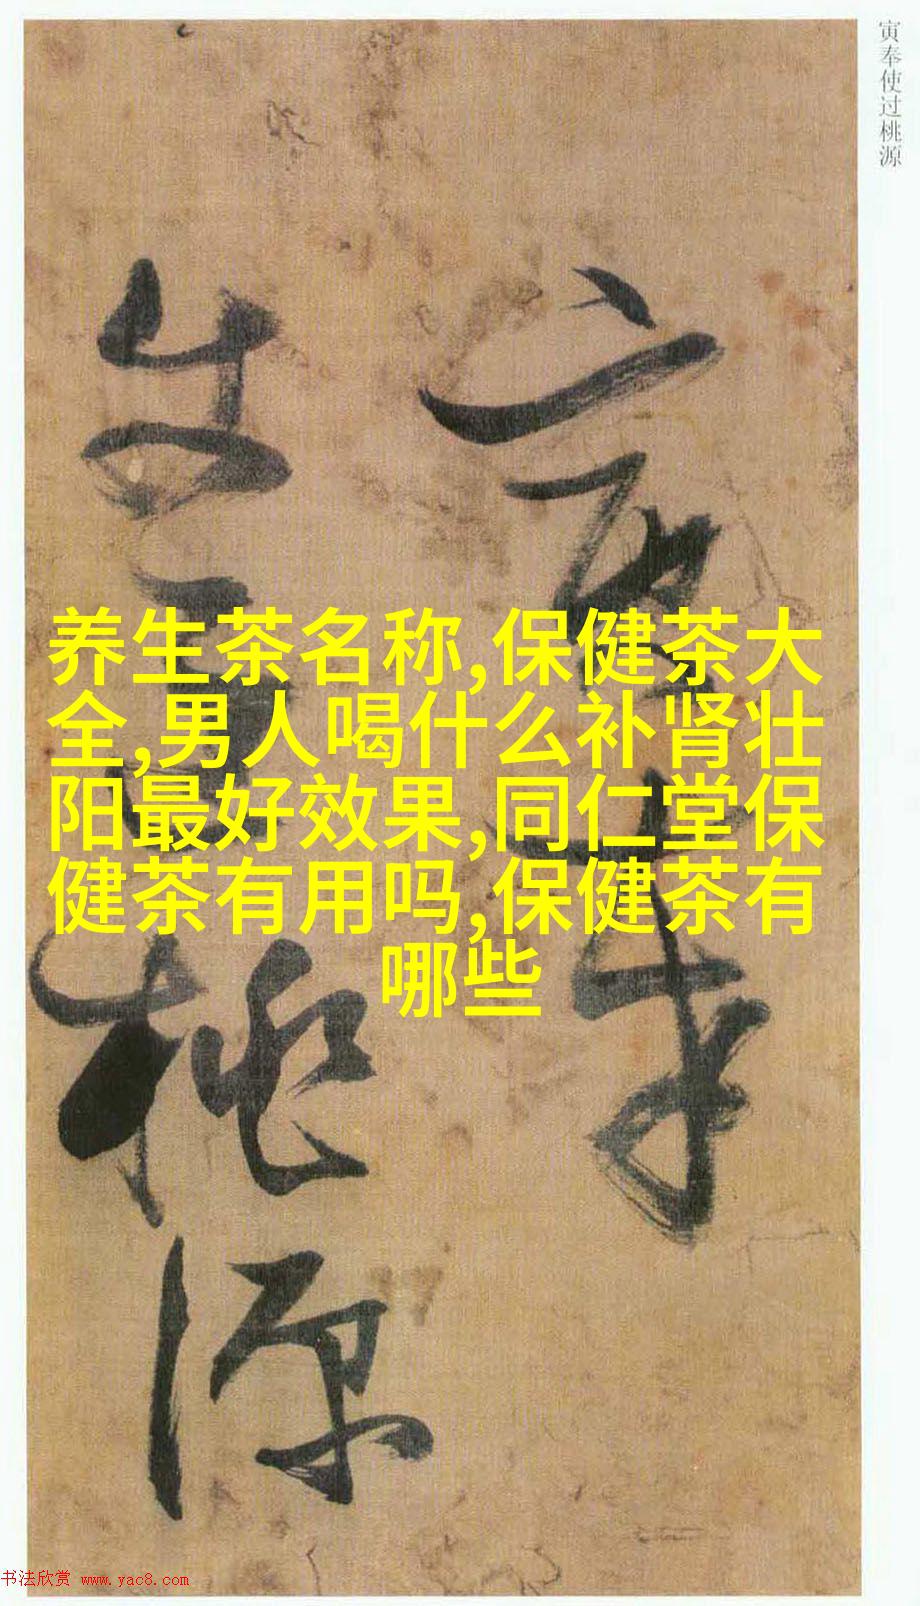 寅奉使过桃源
寅奉
使过桃源
养生茶名称,保健茶大
全,男人喝什么补肾壮
阳最好效果,同仁堂保
健茶有用吗,保健茶有
哪些
书法欣赏 www.yac8.com